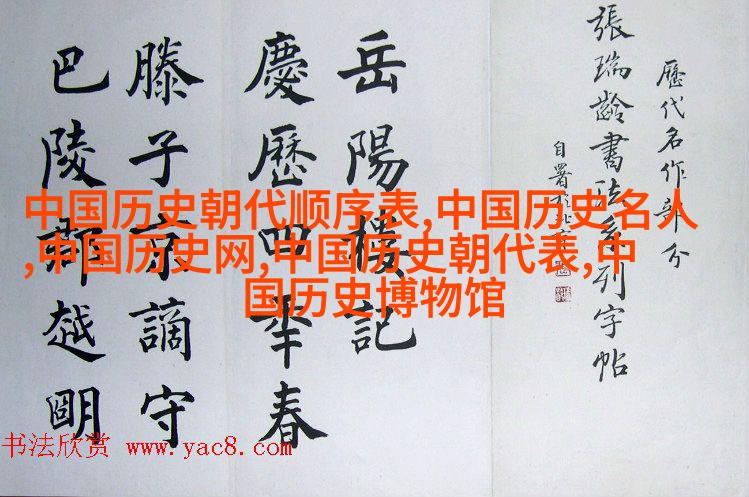 歷代名作部分
張瑞齡書法系列字帖
自署於北京
岳陽樓記
慶歷四年春
滕子京謫守
巴陵郡越明
中国历史朝代顺序表,中国历史名人
,中国历史网,中国历史朝代表,中
国历史博物馆
书法欣赏 www.yac8.com